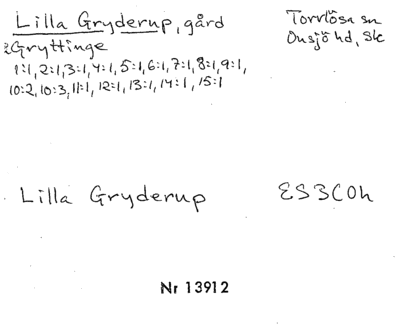 Lilla Gryderup, gård
Torrlösa sn
Onsjö hd, Sk
Gryttinge
1:1, 2:1, 3:1, 4:1, 5:1, 6:1, 7:1, 8:1, 9:1,
10:2, 10:3, 11:1, 12:1, 13:1, 14:1, 15:1
Lilla Gryderup
ES3C0h
Nr 13912